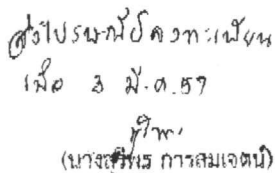 ส่งไปรษณีย์ลงทะเบียน
เมื่อ 3 มี.ค.57
(นางสุริพร การสมเจตน์)